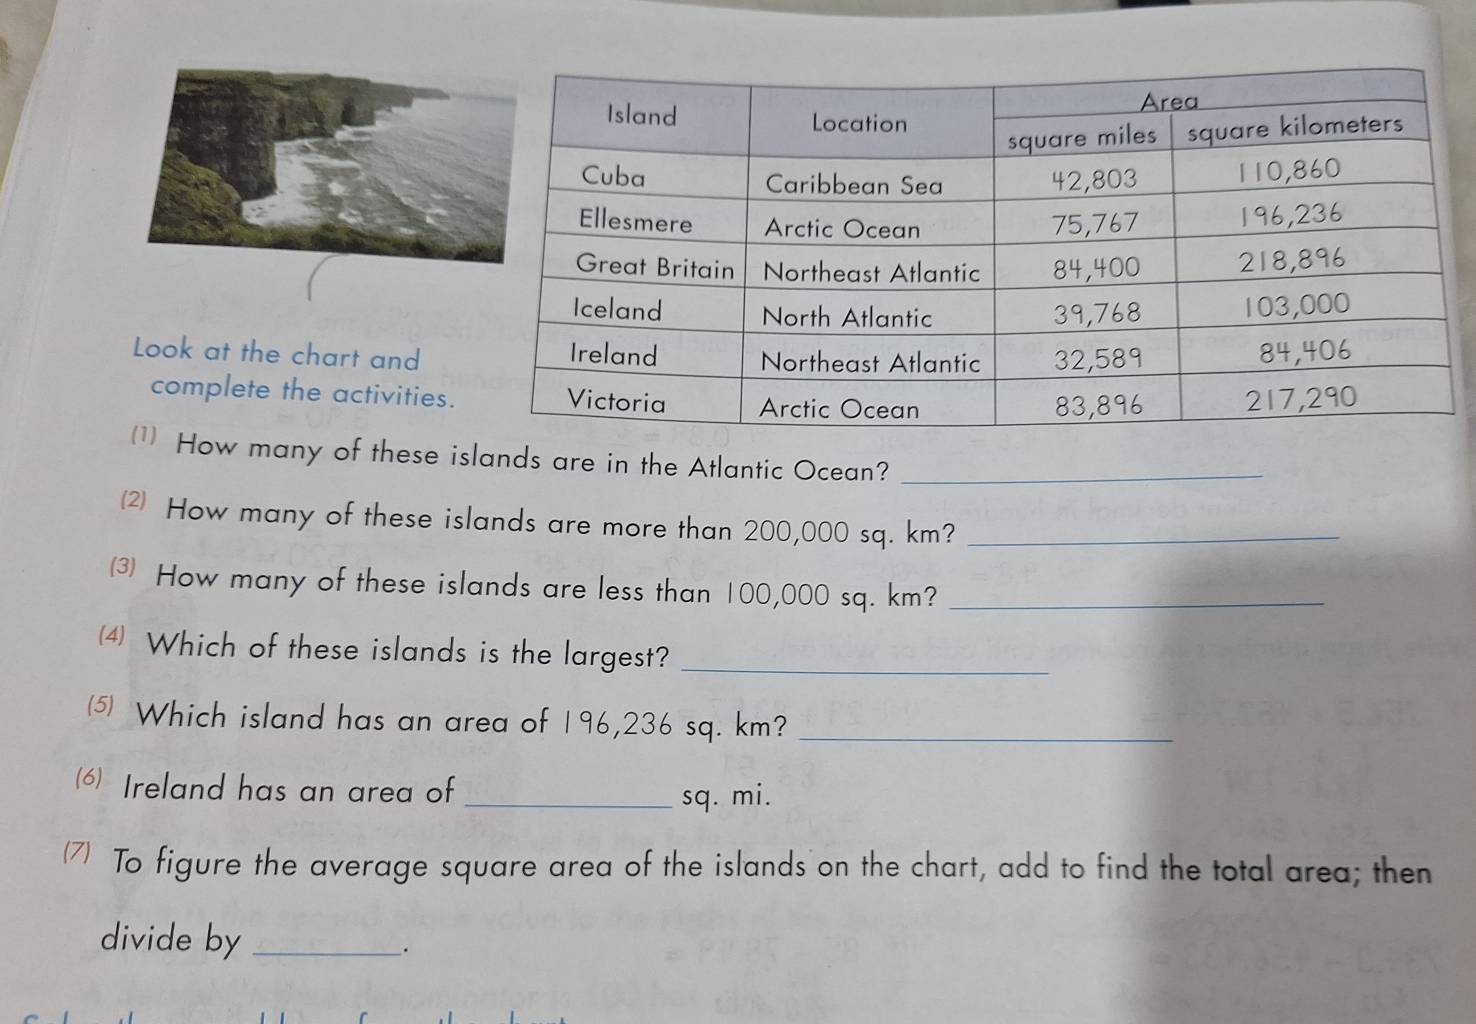 Island Location Area
square miles square kilometers
Cuba Caribbean Sea 42,803 110,860
Ellesmere Arctic Ocean 75,767 196,236
Great Britain Northeast Atlantic 84,400 218,896
Iceland North Atlantic 39,768 103,000
Ireland Northeast Atlantic 32,589 84,406
Victoria Arctic Ocean 83,896 217,290
Look at the chart and
complete the activities.
(1) How many of these islands are in the Atlantic Ocean?
(2) How many of these islands are more than 200,000 sq. km?
(3) How many of these islands are less than 100,000 sq. km?
(4) Which of these islands is the largest?
(5) Which island has an area of 196,236 sq. km?
(6) Ireland has an area of ____ sq. mi.
(7) To figure the average square area of the islands on the chart, add to find the total area; then
divide by ____.